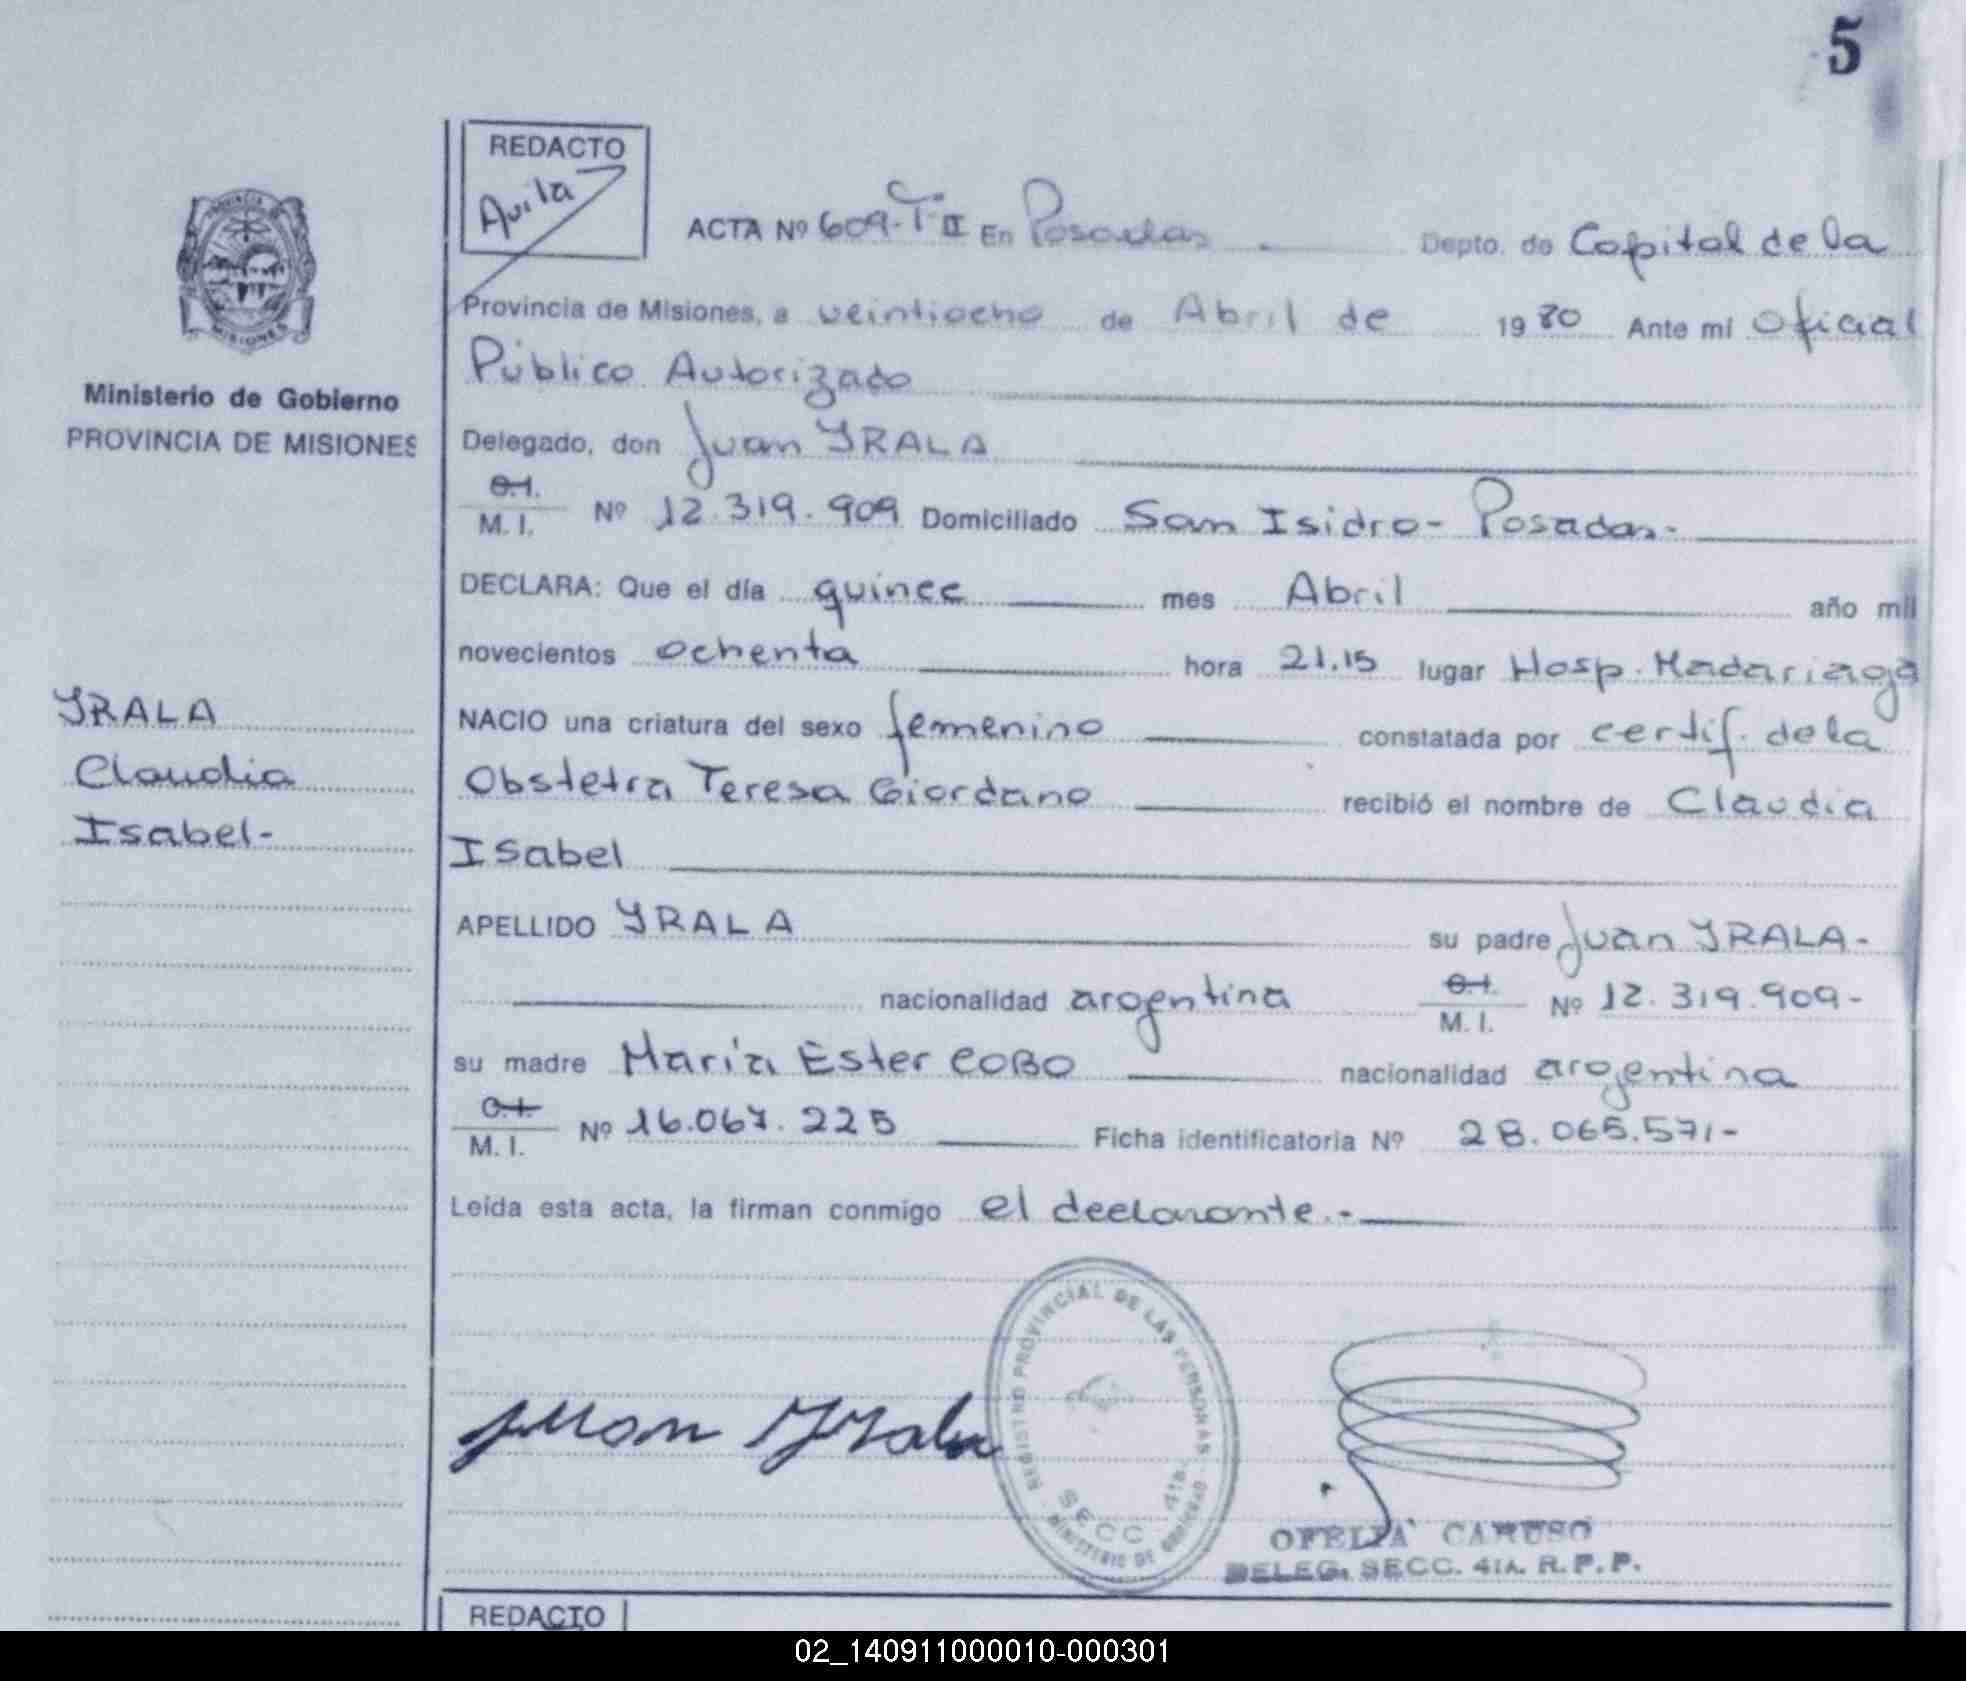 5
REDACTO
Avila
ACTA Nº 609-Tº II En Posadas Depto. de Capital de la
Provincia de Misiones, a veintiocho de Abril de 1980 Ante mi Oficial
Público Autorizado
Delegado, don Juan YRALA
C.I.
M. I. Nº 12.319.909 Domiciliado San Isidro - Posadas-
DECLARA: Que el día quince mes Abril año mil
novecientos ochenta hora 21.15 lugar Hosp. Madariaga
NACIO una criatura del sexo femenino constatada por certif. de la
Obstetra Teresa Giordano recibió el nombre de Claudia
Isabel
APELLIDO YRALA su padre Juan YRALA-
nacionalidad argentina C.I.
M. I. Nº 12.319.909-
su madre María Ester COBO nacionalidad argentina
C.I.
M. I. Nº 16.067.225 Ficha identificatoria Nº 28.065.571-
Leída esta acta, la firman conmigo el declarante.-
PROVINCIA DE
MISIONES
Ministerio de Gobierno
PROVINCIA DE MISIONES
YRALA
Claudia
Isabel-
Juan Yrala
REGISTRO PROVINCIAL DE LAS PERSONAS
SECC 4ta.
MINISTERIO DE GOBIERNO
OFELIA CARUSO
DELEG. SECC. 4ta. R.P.P.
REDACTO
02_140911000010-000301